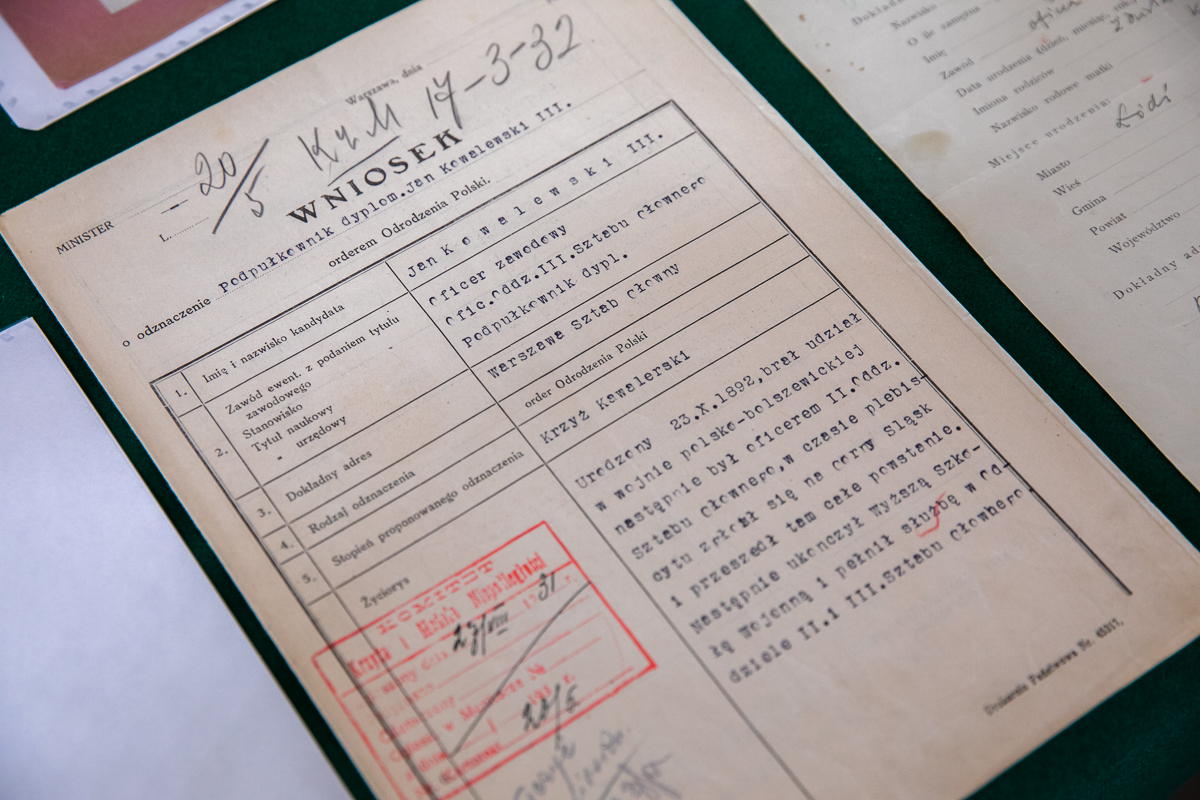 Warszawa, dnia
20/5 K z M 17-3-32
MINISTER
L.
WNIOSEK
o odznaczenie Podpułkownik dyplom.Jan Kowalewski III.
orderem Odrodzenia Polski.
1. Imię i nazwisko kandydata
Jan Kowalewski III.
2. Zawód ewent. z podaniem tytułu
zawodowego
Stanowisko
Tytuł naukowy
" urzędowy
oficer zawodowy
ofic.oddz.III.Sztabu Głownego
Podpułkownik dypl.
3. Dokładny adres
Warszawa Sztab Głowny
4. Rodzaj odznaczenia
order Odrodzenia Polski
5. Stopień proponowanego odznaczenia
Krzyż Kawalerski
Życiorys
Urodzony 23.X.1892,brał udział
w wojnie polsko-bolszewickiej
następnie był oficerem II.Oddz.
Sztabu Głownego,w czasie plebis-
cytu zgłosł się na Gorny Sląsk
i przeszedł tam całe powstanie.
Następnie ukonczył Wyższą Szko-
łę Wojenną i pełnił służbę w Od-
dziele II.i III.Sztabu Głownego.
KOMITET
Krzyża i Medalu Niepodległości
27/VIII 1931 r.
Drukarnia Państwowa Nr.
Dokładn
Nazwisko
O ile zamężna
Imię
Zawód
Data urodzenia (dzień, miesiąc, rok)
Imiona rodziców
Nazwisko rodowe matki
Miejsce urodzenia:
Miasto Łódź
Wieś
Gmina
Powiat
Województwo
Dokładny adr